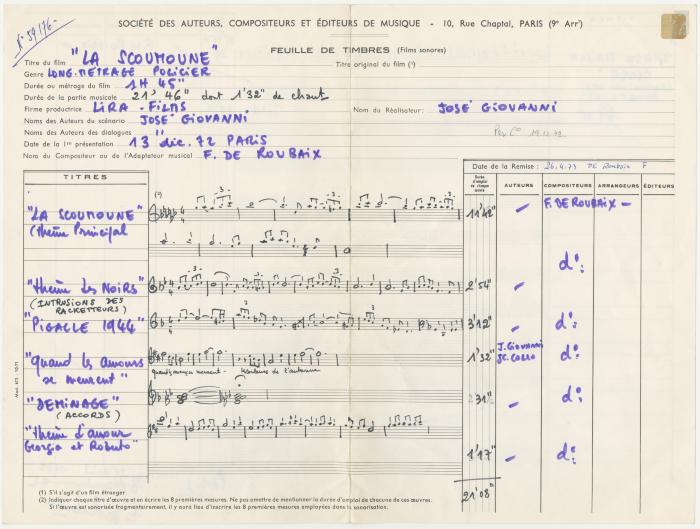 N° 59176-
SOCIÉTÉ DES AUTEURS, COMPOSITEURS ET ÉDITEURS DE MUSIQUE - 10, Rue Chaptal, PARIS (9e Arrt)
FEUILLE DE TIMBRES (Films sonores)
Titre du film "LA SCOUMOUNE"
Titre original du film (1)
Genre LONG-METRAGE POLICIER
Durée ou métrage du film 1H 45"
Durée de la partie musicale 21' 46" dont 1'32" de chant
Firme productrice LIRA-FILMS
Nom du Réalisateur: JOSÉ GIOVANNI
Noms des Auteurs du scénario JOSÉ GIOVANNI
Noms des Auteurs des dialogues "
Date de la 1re présentation 13 déc. 72 PARIS
Nom du Compositeur ou de l'Adaptateur musical F. DE ROUBAIX
Date de la Remise : 26.4.73 DE Roubaix F
TITRES
(2)
Durée d'emploi de chaque œuvre
AUTEURS
COMPOSITEURS
ARRANGEURS
ÉDITEURS
"LA SCOUMOUNE"
(thème Principal
11'42"
F. DE ROUBAIX -
d°:
"thème des NOIRS"
(INTRUSIONS DES
RACKETTEURS)
2'54"
d°:
"PIGALLE 1944"
3'12"
d°:
"quand les amours
se meurent"
1'32"
J. GIOVANNI
d°:
"DEMINAGE"
(ACCORDS)
31"
d°:
"thème d'amour
Georgia et Roberto"
1'17"
d°:
21'08"
(1) S'il s'agit d'un film étranger
(2) Indiquer chaque titre d'œuvre et en écrire les 8 premières mesures. Ne pas omettre de mentionner la durée d'emploi de chacune de ces œuvres.
Si l'œuvre est sonorisée fragmentairement, il y aura lieu d'inscrire les 8 premières mesures employées dans la sonorisation.